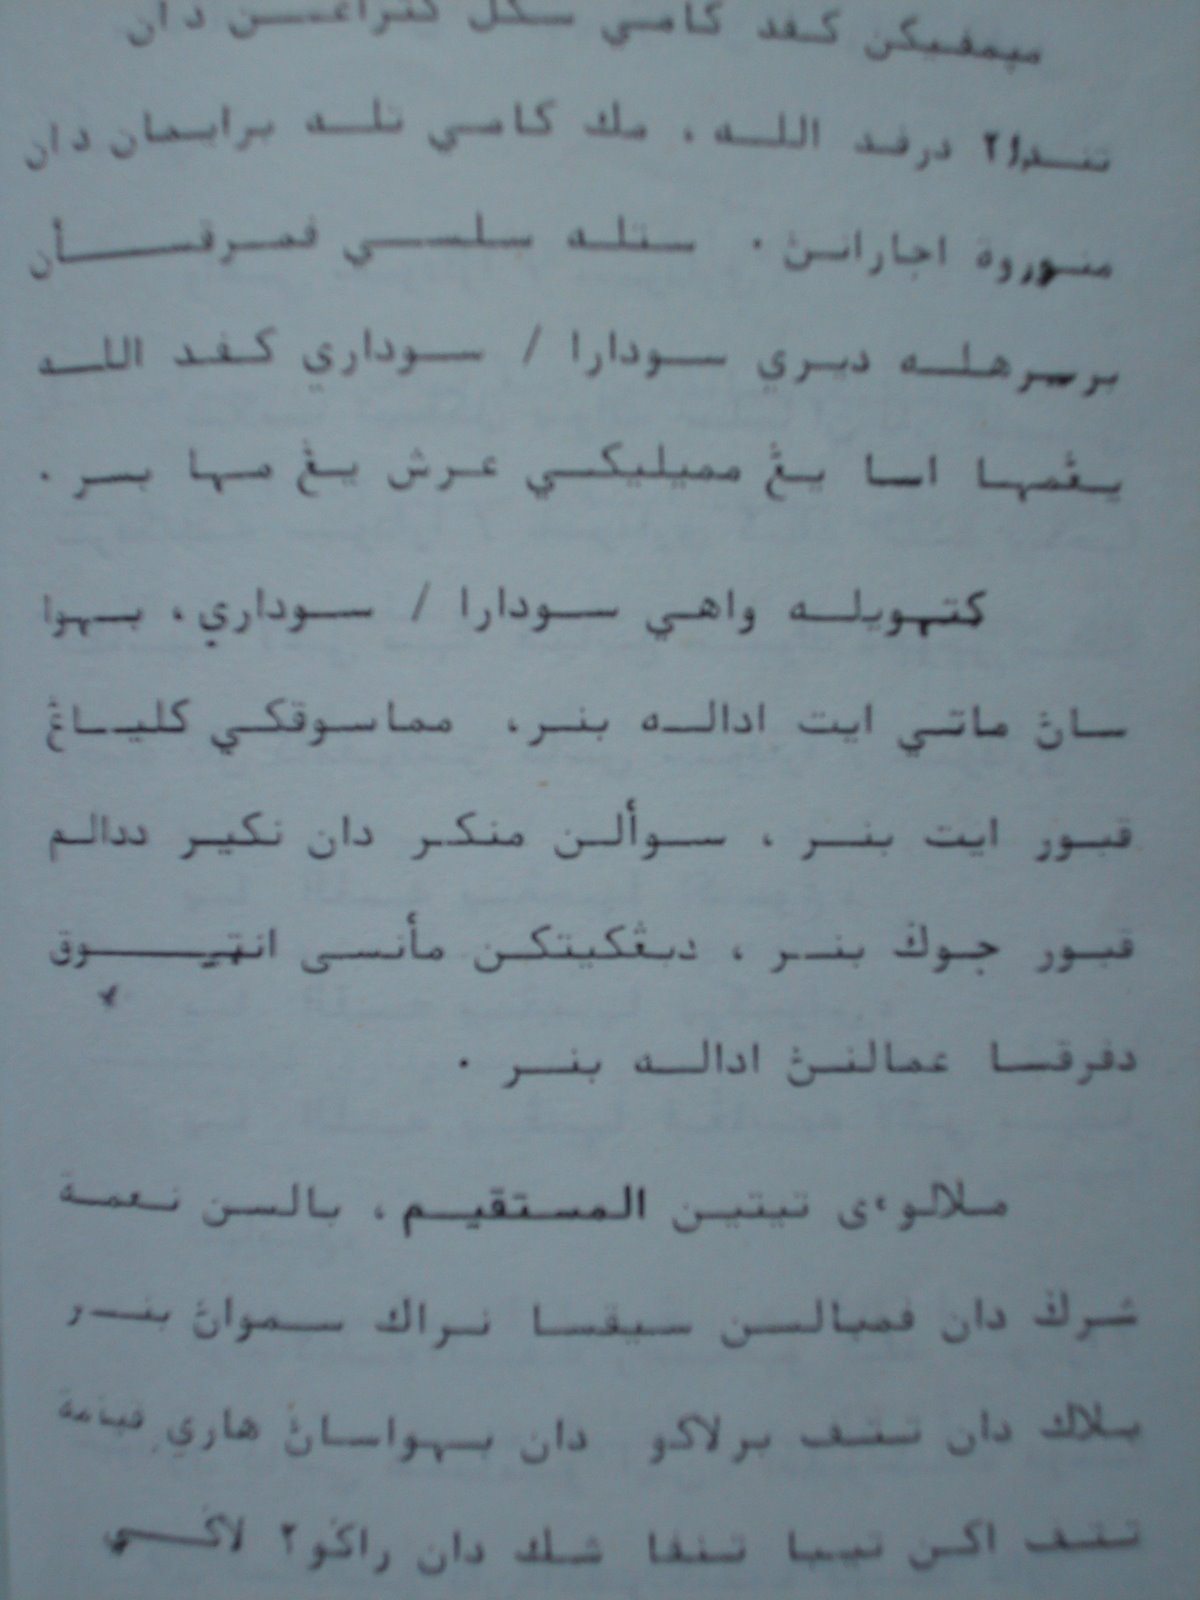 ميمفيكن كفد كامي سكل كتراغن دان
تندا٢ درفد الله، مك كامي تله برايمان دان
منوروة اجارانڽ. ستله سلسي فمرقسأن
برسرهله ديري سودارا / سوداري كفد الله
يڠمها اسا يڠ مميليكي عرش يڠ مها بسر.
كتهويله واهي سودارا / سوداري، بهوا
ساڽ ماتي ايت اداله بنر، مماسوقكي كلياڠ
قبور ايت بنر، سوألن منكر دان نكير ددالم
قبور جوݢ بنر، دبڠكيتكن مأنسى انتيوق
دفرقسا عمالنڽ اداله بنر.
ملالوءى تيتين المستقيم، بالسن نعمة
شرݢ دان فمبالسن سيقسا نراك سمواڽ بنر
بلاك دان تتف برلاكو دان بهواساڽ هاري قيامة
تتف اكن تيبا تنفا شك دان راݢو٢ لاݢي